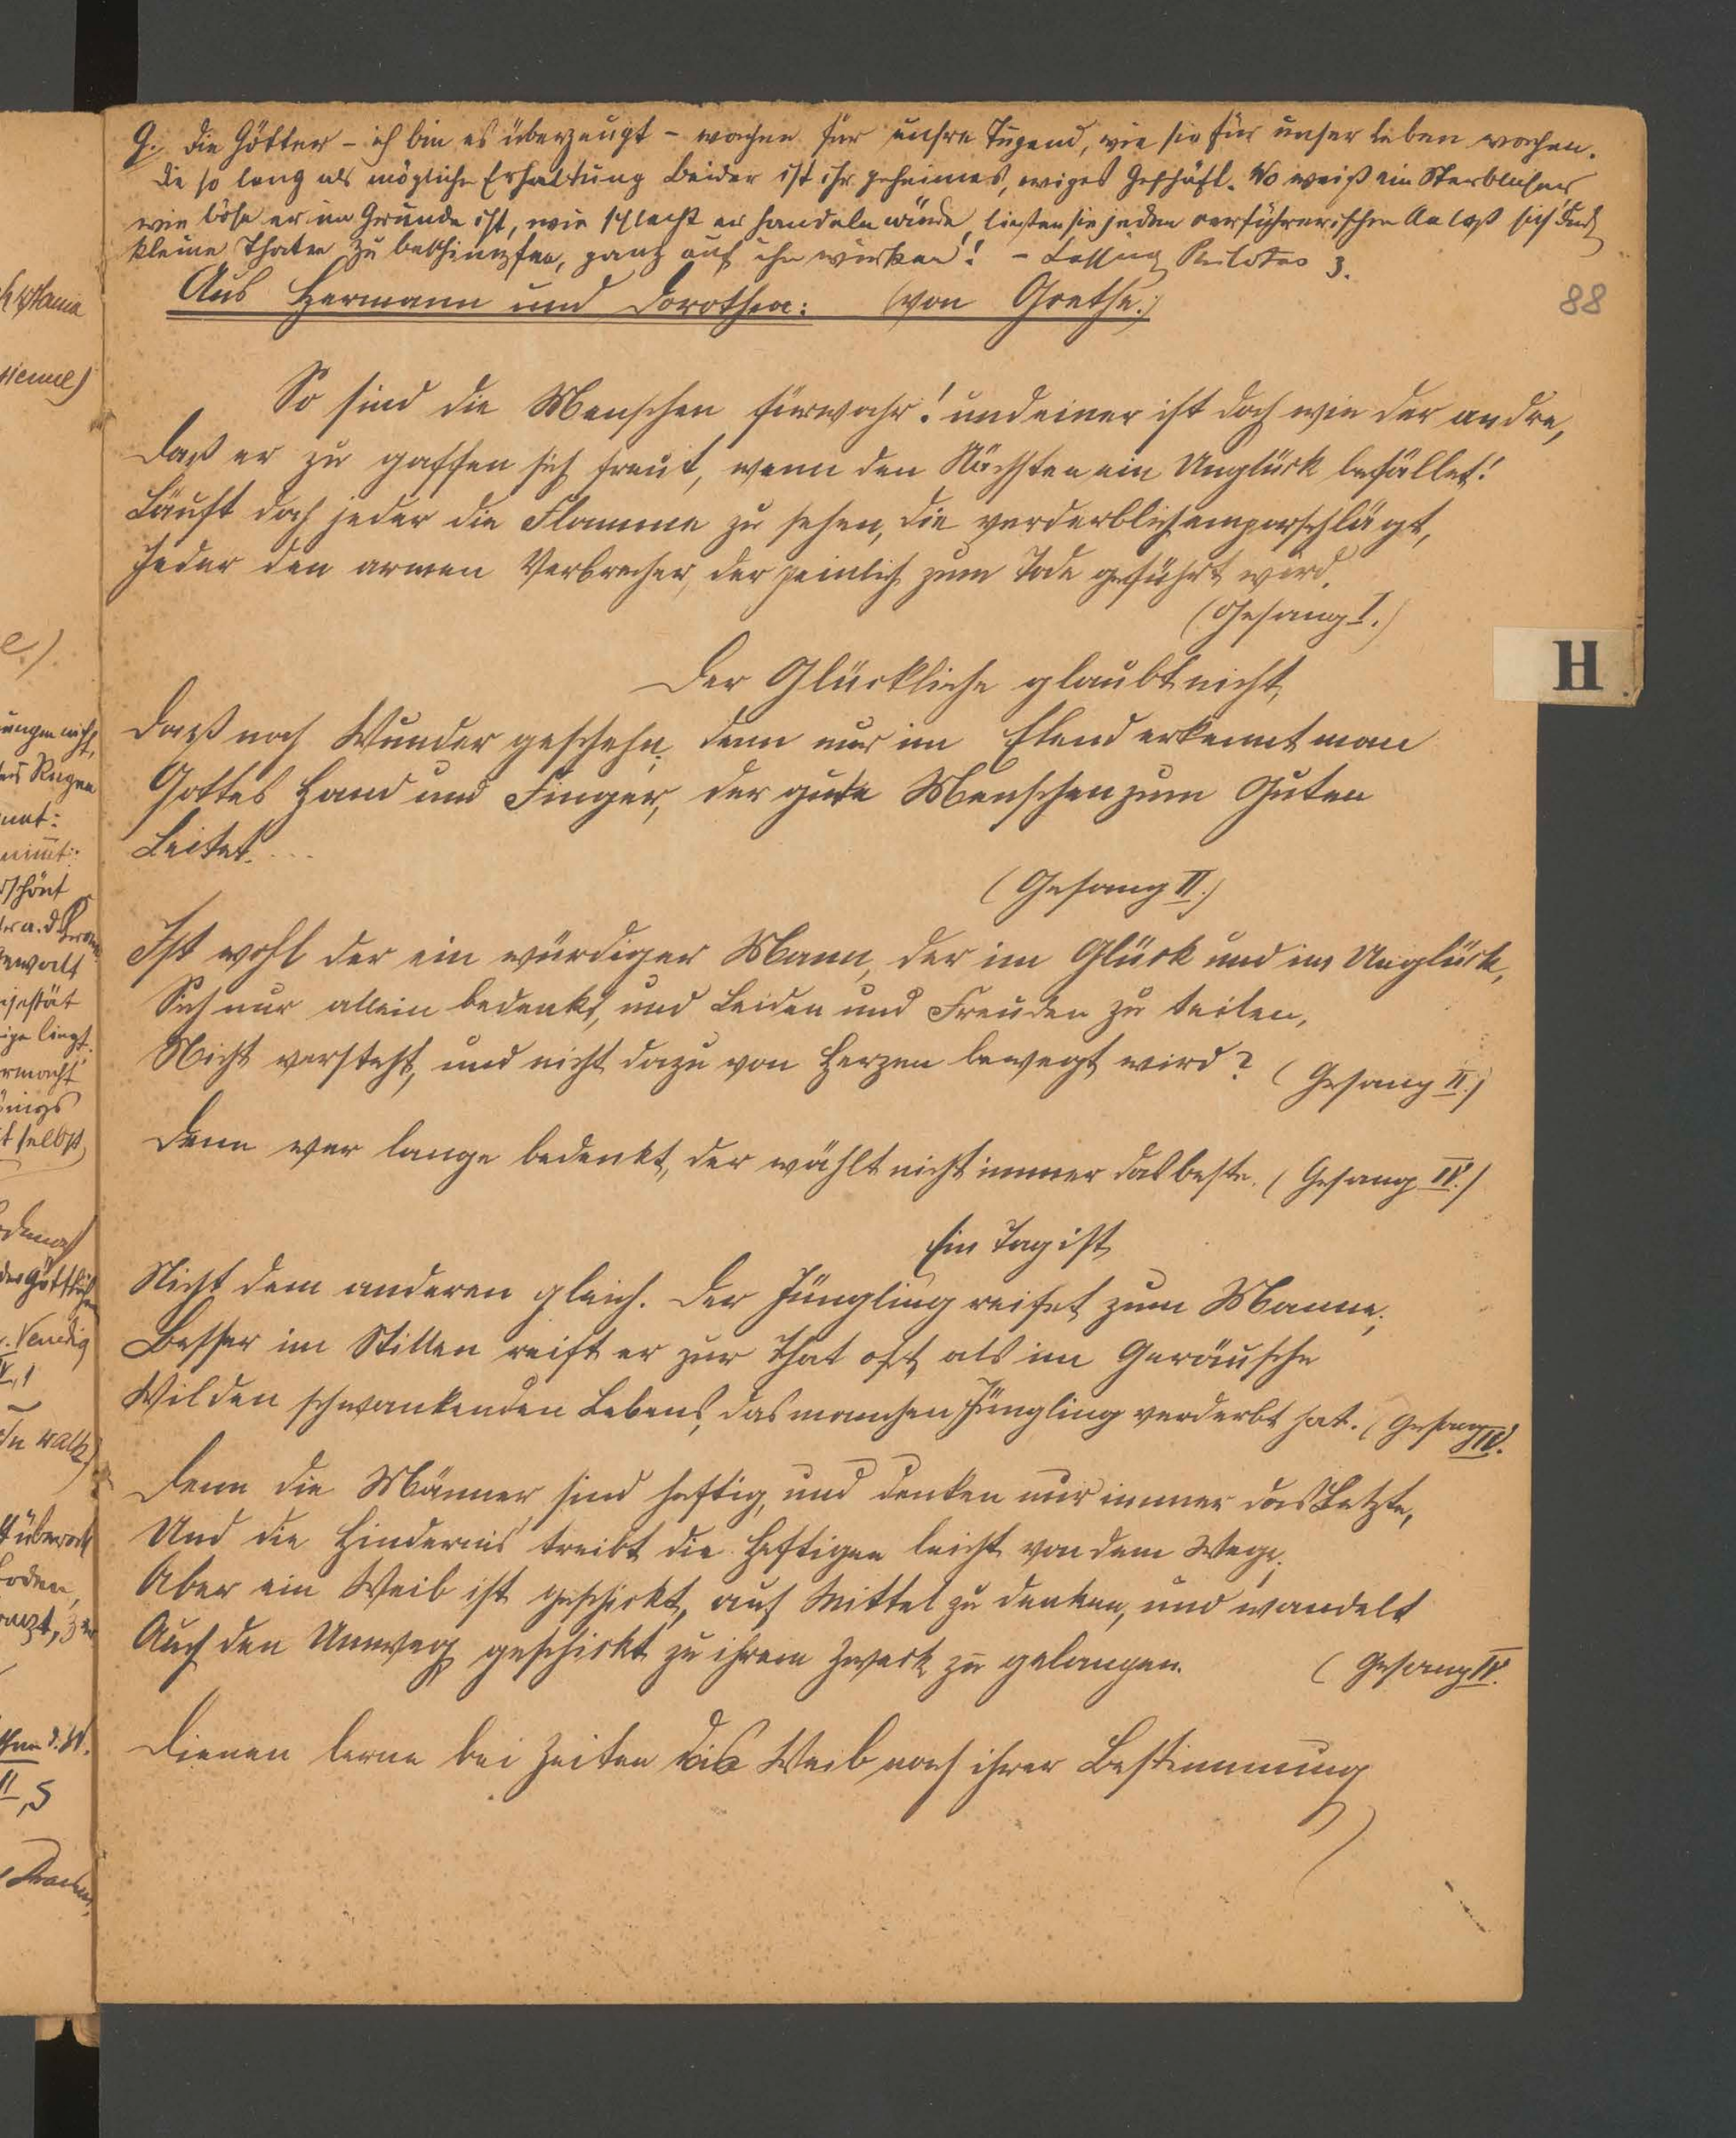 G. Die Götter – ich bin es überzeugt – wachen für unsre Tugend, wie sie für unser Leben wachen.
Die so lang als mögliche Erhaltung beider ist ihr geheimes, ewiges Geschäft. Wo weiß ein Sterblicher
wie böse er im Grunde ist, wie schlecht er handeln würde, ließen sie jeden verführerischen Anlaß sich durch
kleine Thaten zu beschimpfen, ganz auf ihn wirken! – Lessing Philotas 3.
88
Aus Hermann und Dorothea: (von Goethe.)
So sind die Menschen fürwahr! und einer ist doch wie der andre,
Daß er zu gaffen sich freut, wenn den Nächsten ein Unglück befället!
Läuft doch jeder die Flamme zu sehen, die verderblich emporschlägt,
Jeder den armen Verbrecher, der peinlich zum Tode geführt wird.
(Gesang I.)
H
Der Glückliche glaubt nicht,
Daß noch Wunder geschehn; denn nur im Elend erkennt man
Gottes Hand und Finger, der gute Menschen zum Guten
Leitet. ...
(Gesang II.)
Ist wohl der ein würdiger Mann, der im Glück und im Unglück,
Sich nur allein bedenkt, und Leiden und Freuden zu teilen,
Nicht versteht, und nicht dazu von Herzen bewegt wird? (Gesang II.)
Denn wer lange bedenkt, der wählt nicht immer das beste. (Gesang IV.)
Ein Tag ist
Nicht dem anderen gleich. Der Jüngling reifet zum Manne;
Besser im Stillen reift er zur That oft, als im Geräusche
Wilden schwankenden Lebens, das manchen Jüngling verderbt hat. (Gesang IV.
Denn die Männer sind heftig, und denken nur immer das Letzte,
Und die Hindernis treibt die Heftigen leicht von dem Wege;
Aber ein Weib ist geschickt, auf Mittel zu denken, und wandelt
Auch den Umweg geschickt zu ihrem Zweck zu gelangen. (Gesang IV.
Dienen lerne bei Zeiten das Weib nach ihrer Bestimmung